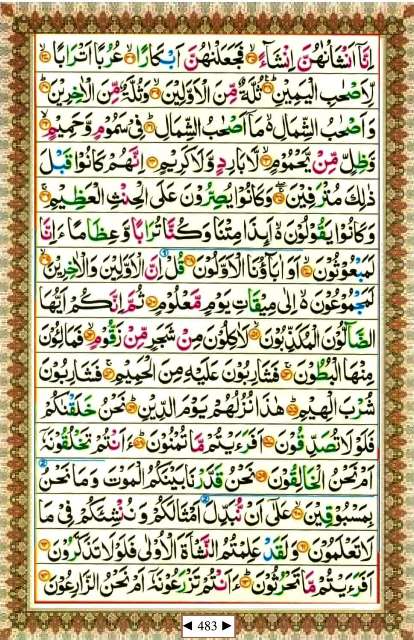 اِنَّاۤ اَنْشَاْنٰهُنَّ اِنْشَآءً ۙ فَجَعَلْنٰهُنَّ اَبْكَارًا ۙ عُرُبًا اَتْرَابًا ۙ
لِّاَصْحٰبِ الْيَمِيْنِ ؕ ثُلَّةٌ مِّنَ الْاَوَّلِيْنَ ۙ وَثُلَّةٌ مِّنَ الْاٰخِرِيْنَ ؕ
وَاَصْحٰبُ الشِّمَالِ ۙ مَاۤ اَصْحٰبُ الشِّمَالِ ؕ فِيْ سَمُوْمٍ وَّحَمِيْمٍ ۙ
وَّظِلٍّ مِّنْ يَّحْمُوْمٍ ۙ لَّا بَارِدٍ وَّلَا كَرِيْمٍ ۚ اِنَّهُمْ كَانُوْا قَبْلَ
ذٰلِكَ مُتْرَفِيْنَ ۚ وَكَانُوْا يُصِرُّوْنَ عَلَى الْحِنْثِ الْعَظِيْمِ ۚ
وَكَانُوْا يَقُوْلُوْنَ ۙ اَئِذَا مِتْنَا وَكُنَّا تُرَابًا وَّعِظَامًا ءَاِنَّا
لَمَبْعُوْثُوْنَ ۙ اَوَاٰبَآؤُنَا الْاَوَّلُوْنَ ؕ قُلْ اِنَّ الْاَوَّلِيْنَ وَالْاٰخِرِيْنَ ۙ
لَمَجْمُوْعُوْنَ ۙ اِلٰى مِيْقَاتِ يَوْمٍ مَّعْلُوْمٍ ؕ ثُمَّ اِنَّكُمْ اَيُّهَا
الضَّآلُّوْنَ الْمُكَذِّبُوْنَ ۙ لَاٰكِلُوْنَ مِنْ شَجَرٍ مِّنْ زَقُّوْمٍ ۙ فَمَالِـُٔوْنَ
مِنْهَا الْبُطُوْنَ ۚ فَشَارِبُوْنَ عَلَيْهِ مِنَ الْحَمِيْمِ ۚ فَشَارِبُوْنَ
شُرْبَ الْهِيْمِ ؕ هٰذَا نُزُلُهُمْ يَوْمَ الدِّيْنِ ؕ نَحْنُ خَلَقْنٰكُمْ
فَلَوْلَا تُصَدِّقُوْنَ ؕ اَفَرَءَيْتُمْ مَّا تُمْنُوْنَ ؕ ءَاَنْتُمْ تَخْلُقُوْنَهٗۤ
اَمْ نَحْنُ الْخَالِقُوْنَ ؕ نَحْنُ قَدَّرْنَا بَيْنَكُمُ الْمَوْتَ وَمَا نَحْنُ
بِمَسْبُوْقِيْنَ ۙ عَلٰۤى اَنْ نُّبَدِّلَ اَمْثَالَكُمْ وَنُنْشِئَكُمْ فِيْ مَا
لَا تَعْلَمُوْنَ ؕ وَلَقَدْ عَلِمْتُمُ النَّشْاَةَ الْاُوْلٰى فَلَوْلَا تَذَكَّرُوْنَ ؕ
اَفَرَءَيْتُمْ مَّا تَحْرُثُوْنَ ؕ ءَاَنْتُمْ تَزْرَعُوْنَهٗۤ اَمْ نَحْنُ الزَّارِعُوْنَ
◄ 483 ►